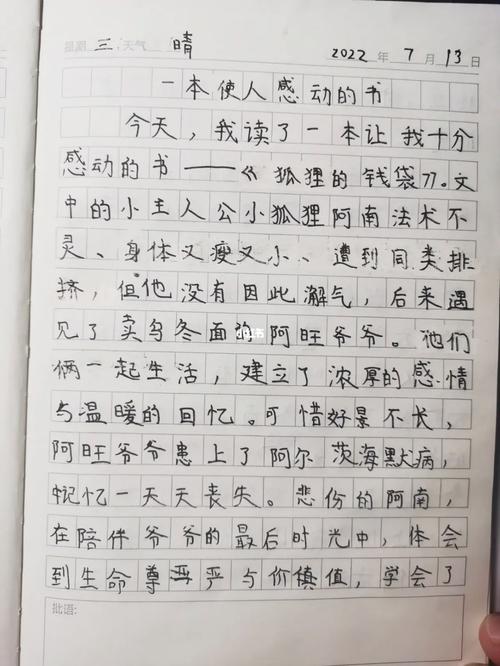 星期 三 天气 晴 2022 年 7 月 13 日
一本使人感动的书
今天，我读了一本让我十分
感动的书——《狐狸的钱袋》。文
中的小主人公小狐狸阿南法术不
灵、身体又瘦又小、遭到同类排
挤，但他没有因此澥气，后来遇
见了卖乌冬面的阿旺爷爷。他们
俩一起生活，建立了浓厚的感情
与温暖的回忆。可惜好景不长，
阿旺爷爷患上了阿尔茨海默病，
记忆一天天丧失。悲伤的阿南，
在陪伴爷爷的最后时光中，体会
到生命尊严与价值，学会了
批语: